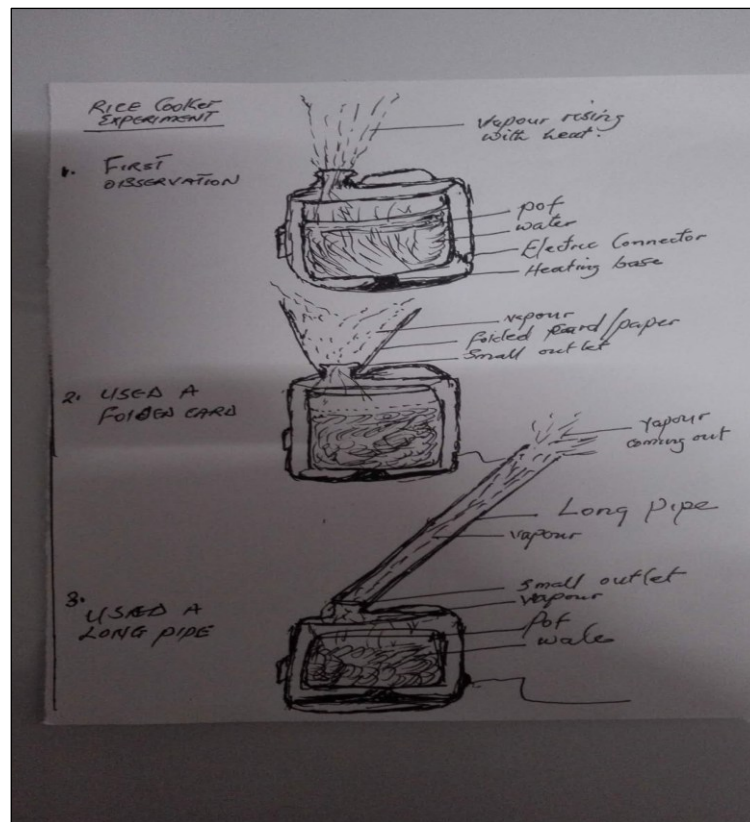 RICE COOKER
EXPERIMENT
vapour rising
with heat.
1. FIRST
OBSERVATION
pot
water
Electric Connector
Heating base
vapour
folded card/paper
small outlet
2. USED A
FOLDED CARD
vapour
coming out
Long pipe
vapour
small outlet
vapour
3.
USED A
LONG PIPE
Pot
water